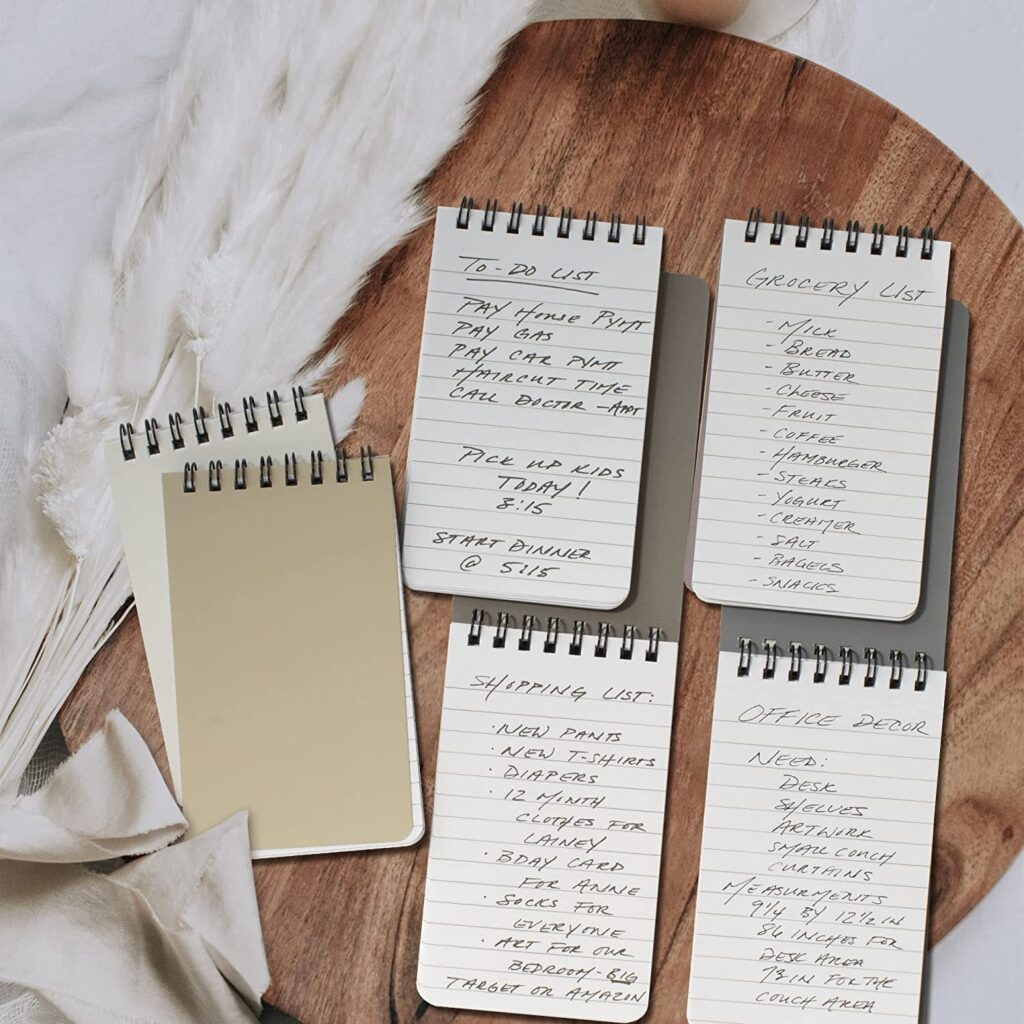 TO-DO LIST
PAY HOUSE PYMT
PAY GAS
PAY CAR PYMT
HAIRCUT TIME
CALL DOCTOR -APPT
PICK UP KIDS
TODAY!
3:15
START DINNER
@ 5:15
GROCERY LIST
- MILK
- BREAD
- BUTTER
- CHEESE
- FRUIT
- COFFEE
- HAMBURGER
- STEAKS
- YOGURT
- CREAMER
- SALT
- BAGELS
- SNACKS
SHOPPING LIST:
· NEW PANTS
· NEW T-SHIRTS
· DIAPERS
· 12 MONTH
CLOTHES FOR
LAINEY
· BDAY CARD
FOR ANNIE
· SOCKS FOR
EVERYONE
· ART FOR OUR
BEDROOM-BIG
TARGET OR AMAZON
OFFICE DECOR
NEED:
DESK
SHELVES
ARTWORK
SMALL COUCH
CURTAINS
MEASURMENTS
9 1/4 BY 12 1/2 IN
86 INCHES FOR
DESK AREA
73 IN FOR THE
COUCH AREA